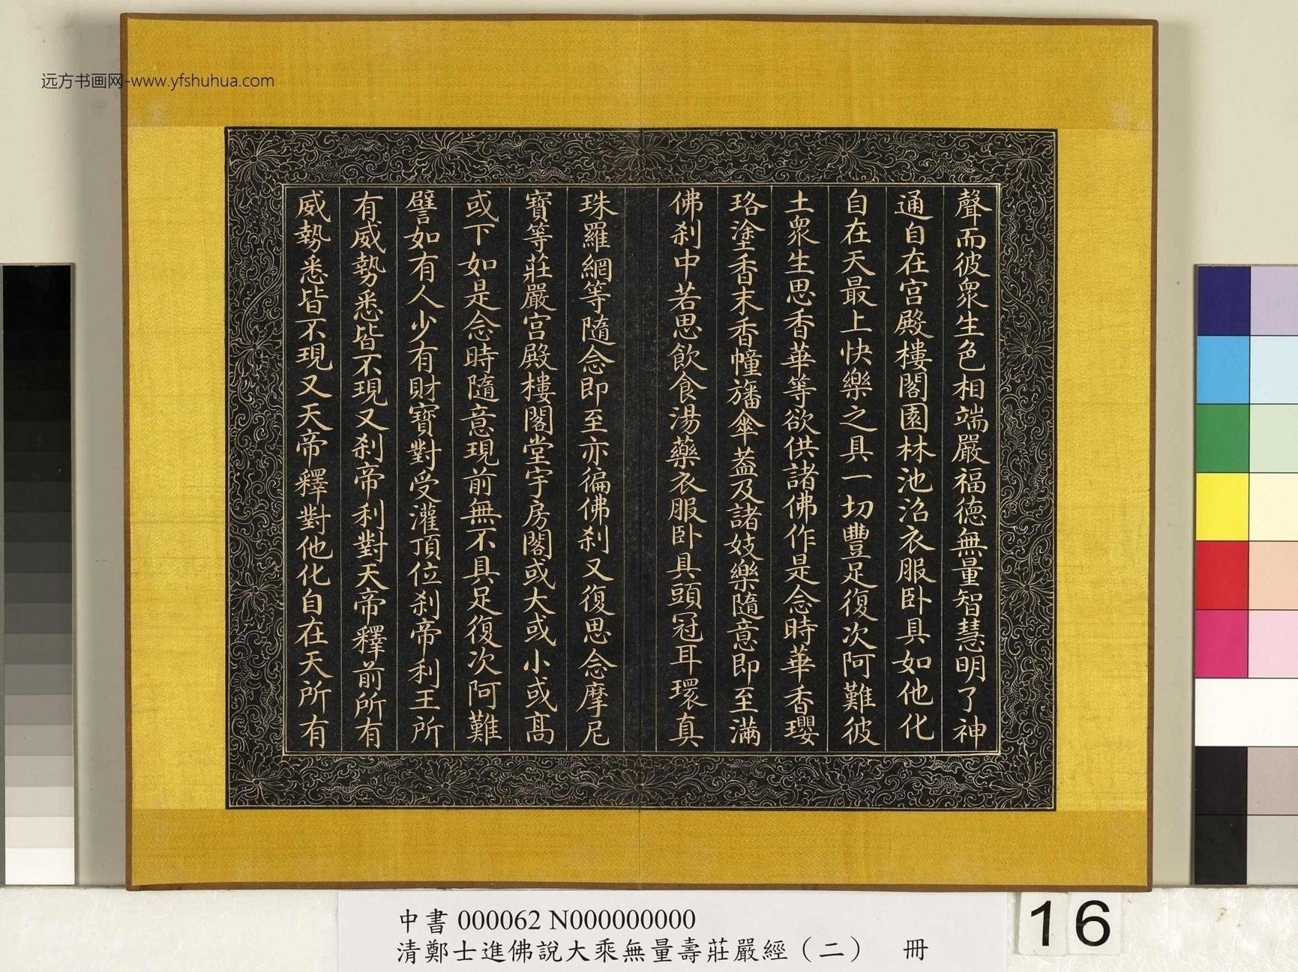 远方书画网-www.yfshuhua.com
聲而彼衆生色相端嚴福德無量智慧明了神
通自在宮殿樓閣園林池沼衣服卧具如他化
自在天最上快樂之具一切豐足復次阿難彼
土衆生思香華等欲供諸佛作是念時華香瓔
珞塗香末香幢旛傘蓋及諸妓樂隨意即至滿
佛刹中若思飲食湯藥衣服卧具頭冠耳環真
珠羅網等隨念即至亦徧佛刹又復思念摩尼
寶等莊嚴宮殿樓閣堂宇房閣或大或小或髙
或下如是念時隨意現前無不具足復次阿難
譬如有人少有財寶對受灌頂位刹帝利王所
有威勢悉皆不現又刹帝利對天帝釋前所有
威勢悉皆不現又天帝釋對他化自在天所有
中書 000062 N000000000
清鄭士進佛說大乘無量壽莊嚴經（二） 冊
16